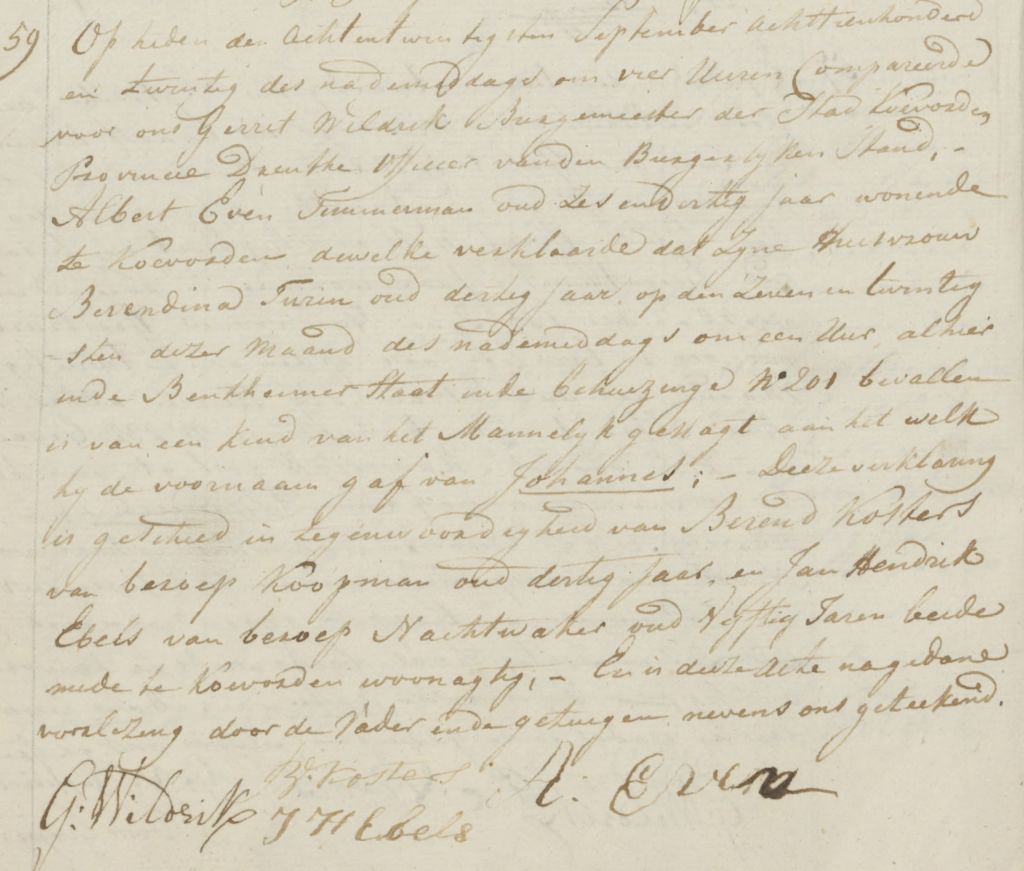 59 Op heden den Achtentwintigsten September achttienhonderd
en twintig des nademiddags om vier Uuren Compareerde
voor ons Gerret Wildrik Burgemeester der Stad Koevorden
Provincie Drenthe Officier vanden Burgerlyken Stand, -
Albert Even Timmerman oud Zes endertig jaar wonende
te Koevorden dewelke verklaarde dat Zyne Huisvrouw
Berendina Turin oud dertig jaar, op den Zeven en twintig
sten dezer Maand des nademiddags om een Uur, alhier
inde Benthheimer Staat inde behuizinge No 201 bevallen
is van een kind van het Mannelyk geslagt aan het welk
hy de voornaam gaf van Johannes; - Deeze verklaring
is geschied in tegenwoordigheid van Berend Kosters
van beroep Koopman oud dertig jaar, en Jan Hendrik
Ebels van beroep Nachtwaker oud Vyftig Jaren beide
mede te Koevorden woonagtig, - En is deeze Acte na gedane
voorlezing door de Vader ende getuigen nevens ons geteekend.
G: Wildrik B: Kosters A: Even
J H Ebels